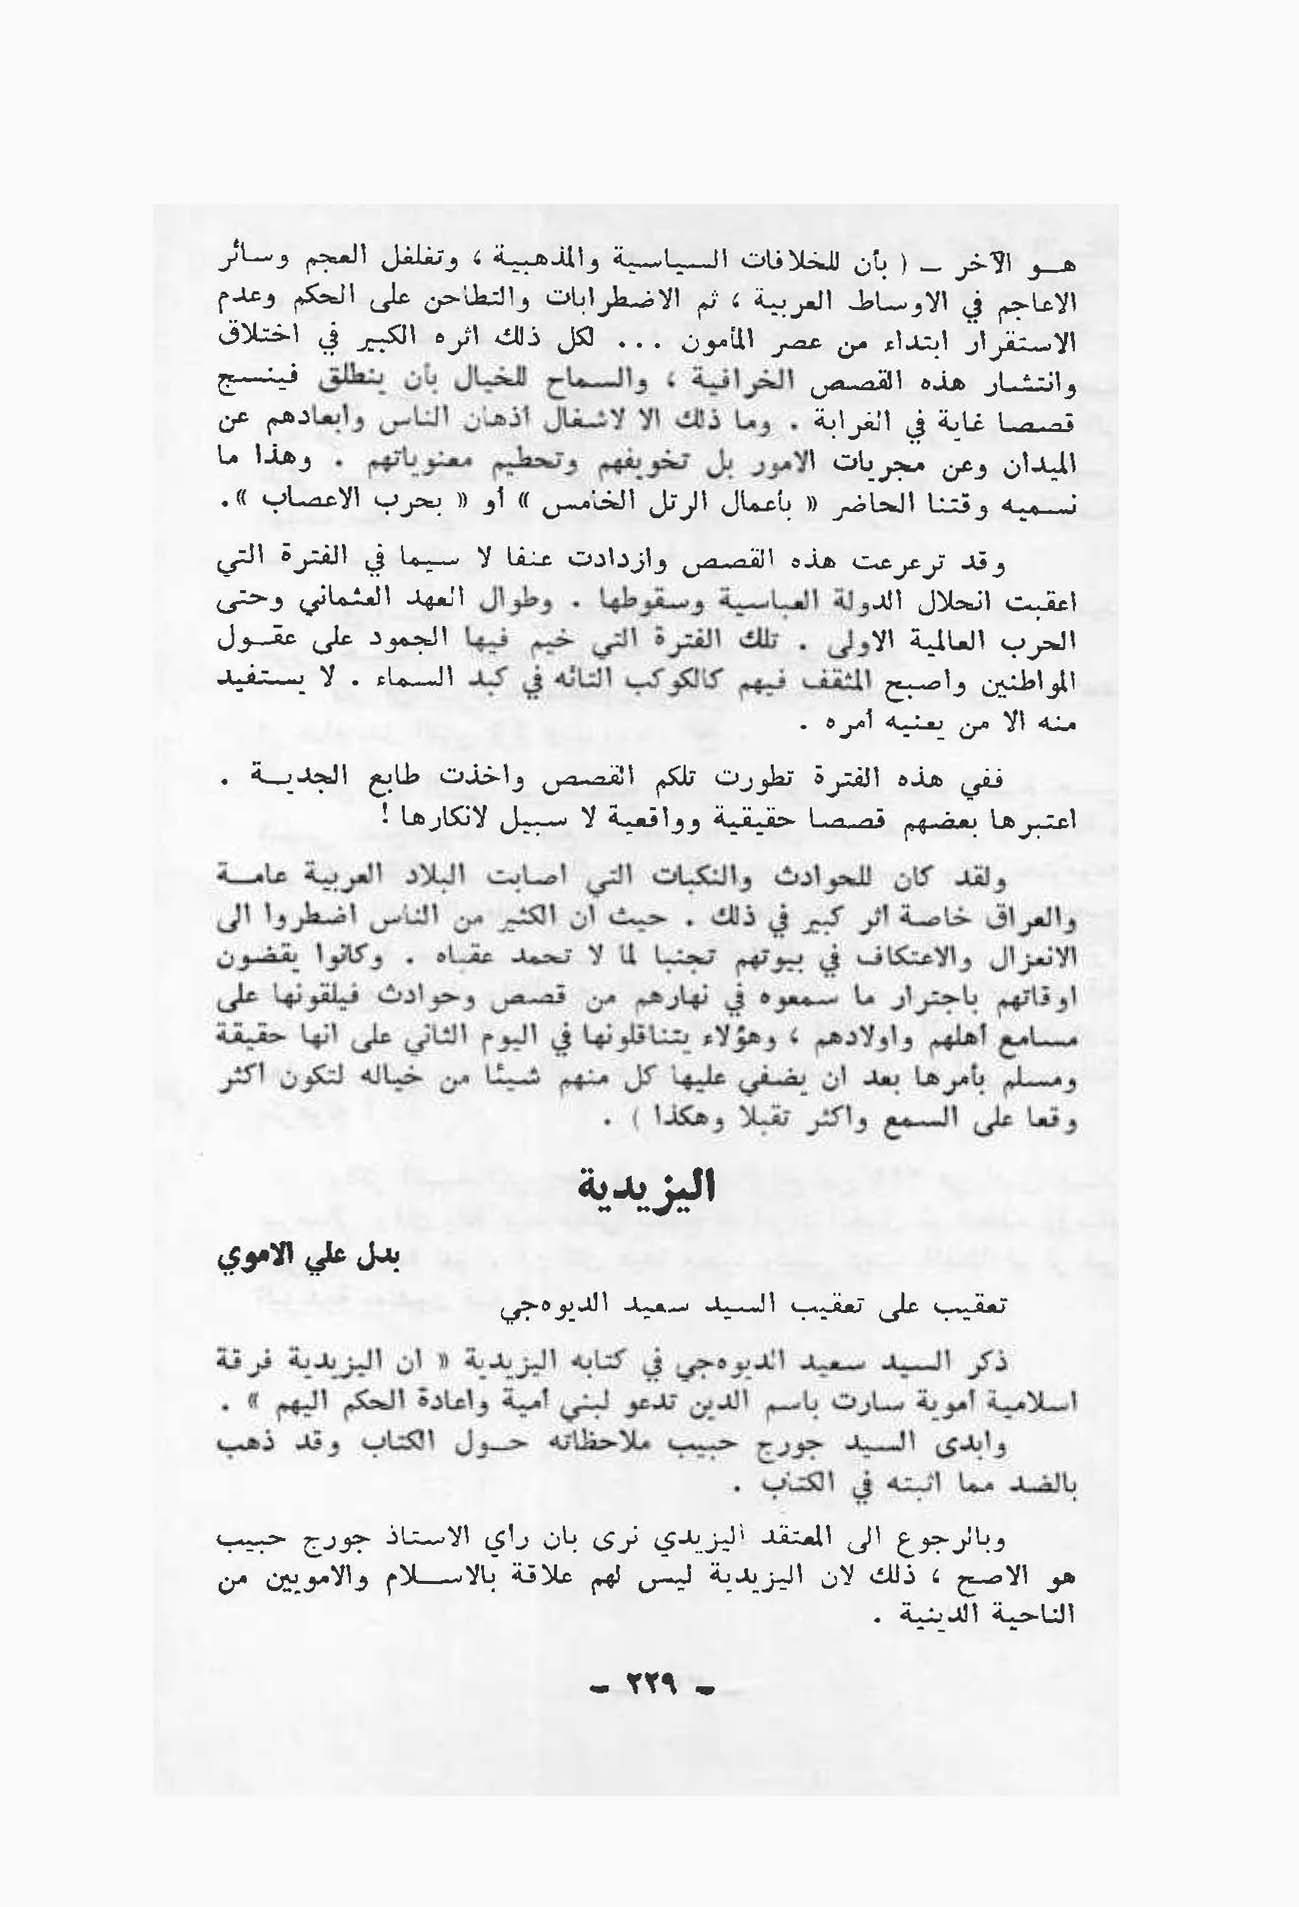 هو الآخر ـ ( بأن للخلافات السياسية والمذهبية ، وتغلغل العجم وسائر
الاعاجم في الاوساط العربية ، ثم الاضطرابات والتطاحن على الحكم وعدم
الاستقرار ابتداء من عصر المأمون ... لكل ذلك اثره الكبير في اختلاق
وانتشار هذه القصص الخرافية ، والسماح للخيال بأن ينطلق فينسج
قصصا غاية في الغرابة . وما ذلك الا لاشغال أذهان الناس وابعادهم عن
الميدان وعن مجريات الامور بل تخويفهم وتحطيم معنوياتهم . وهذا ما
نسميه وقتنا الحاضر « بأعمال الرتل الخامس » أو « بحرب الاعصاب ».
وقد ترعرعت هذه القصص وازدادت عنفا لا سيما في الفترة التي
اعقبت انحلال الدولة العباسية وسقوطها . وطوال العهد العثماني وحتى
الحرب العالمية الاولى . تلك الفترة التي خيم فيها الجمود على عقول
المواطنين واصبح المثقف فيهم كالكوكب التائه في كبد السماء . لا يستفيد
منه الا من يعنيه أمره .
ففي هذه الفترة تطورت تلكم القصص واخذت طابع الجدية .
اعتبرها بعضهم قصصا حقيقية وواقعية لا سبيل لانكارها !
ولقد كان للحوادث والنكبات التي اصابت البلاد العربية عامة
والعراق خاصة اثر كبير في ذلك . حيث ان الكثير من الناس اضطروا الى
الانعزال والاعتكاف في بيوتهم تجنبا لما لا تحمد عقباه . وكانوا يقضون
اوقاتهم باجترار ما سمعوه في نهارهم من قصص وحوادث فيلقونها على
مسامع أهلهم واولادهم ، وهؤلاء يتناقلونها في اليوم الثاني على انها حقيقة
ومسلم بأمرها بعد ان يضفي عليها كل منهم شيئا من خياله لتكون اكثر
وقعا على السمع واكثر تقبلا وهكذا ) .
اليزيدية
بدل علي الاموي
تعقيب على تعقيب السيد سعيد الديوهجي
ذكر السيد سعيد الديوهجي في كتابه اليزيدية « ان اليزيدية فرقة
اسلامية أموية سارت باسم الدين تدعو لبني أمية واعادة الحكم اليهم » .
وابدى السيد جورج حبيب ملاحظاته حول الكتاب وقد ذهب
بالضد مما اثبته في الكتاب .
وبالرجوع الى المعتقد اليزيدي نرى بان رأي الاستاذ جورج حبيب
هو الاصح ، ذلك لان اليزيدية ليس لهم علاقة بالاسلام والامويين من
الناحية الدينية .
ـ ٢٢٩ ـ